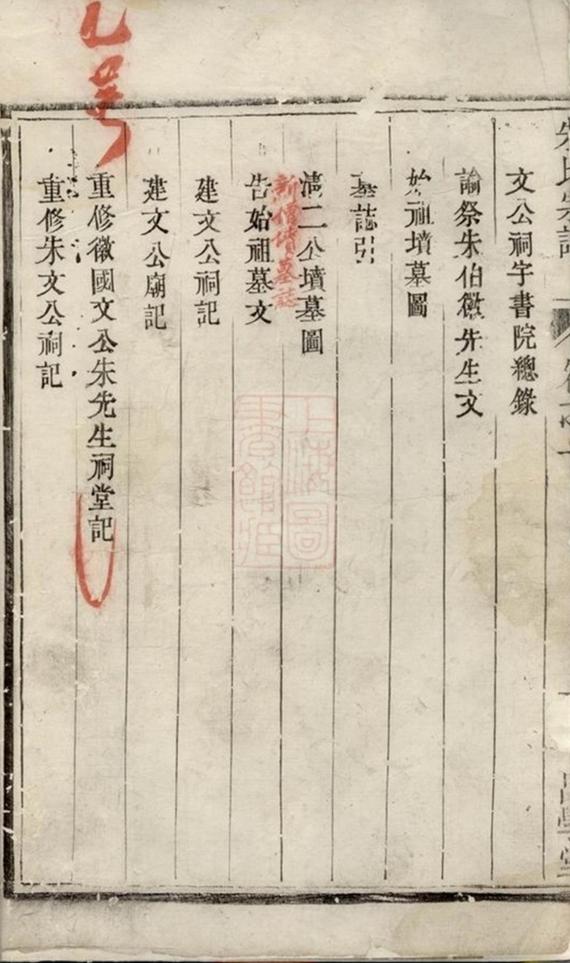 文公祠宇書院總錄
諭祭朱伯徽先生文
始祖墳墓圖
墓誌引
清二公墳墓圖
新僧墳墓誌
告始祖墓文
建文公祠記
建文公廟記
重修徽國文公朱先生祠堂記
重修朱文公祠記
朱氏宗譜